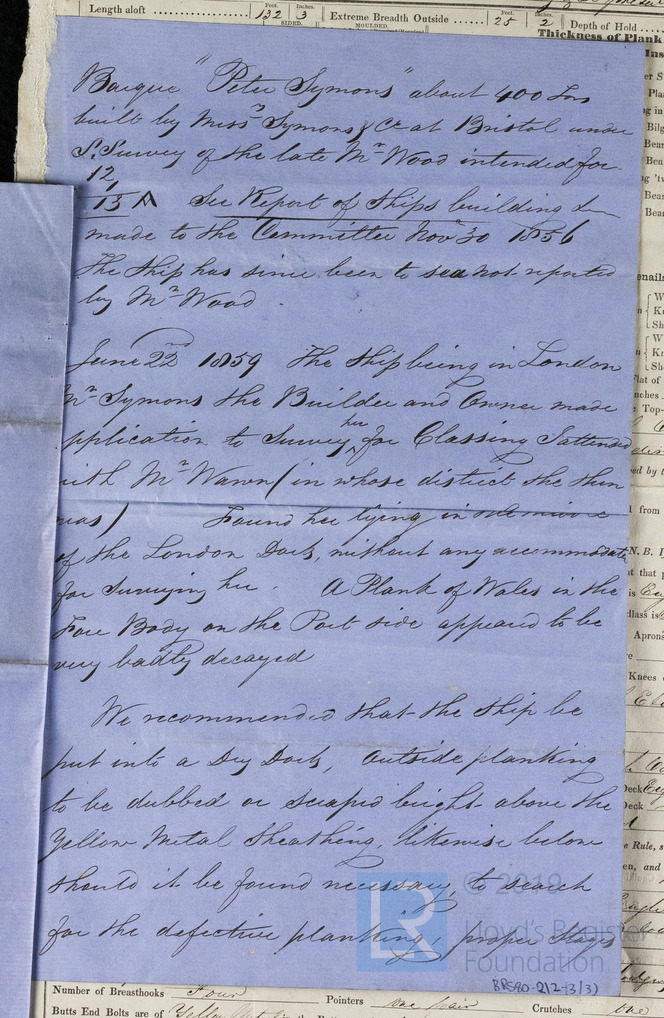 Length aloft Feet. 132 Inches. 3 Extreme Breadth Outside Feet. 25 Inches. 2 Depth of Hold
SIDED. MOULDED. Thickness of Plank
Barque "Peter Symons" about 400 Tons
built by Messrs Symons & Co at Bristol under
S. Survey of the late Mr Wood intended for
12
/13 A See Report of Ships building &
made to the Committee Novr 30 1856
The Ship has since been to sea not reported
by Mr Wood.
June 22nd 1859 The Ship being in London
Mr Symons the Builder and Owner made
pplication to Survey her for Classing I attended
with Mr Wawn (in whose district she then
was) Found her lying in
of the London Dock, without any accommodate
for Surveying her. A Plank of Wales in the
Fore Body on the Port side appeared to be
very badly decayed
We recommended that the Ship be
put into a Dry Dock, Outside planking
to be dubbed or scraped bright above the
Yellow Metal Sheathing, likewise below
should it be found necessary, to search
for the defective planking, proper Stages
LR © 2019
Lloyd's Register
Foundation
BRS80-212-3(3)
Number of Breasthooks Four Pointers one pair Crutches one
Butts End Bolts are of Yellow Metal